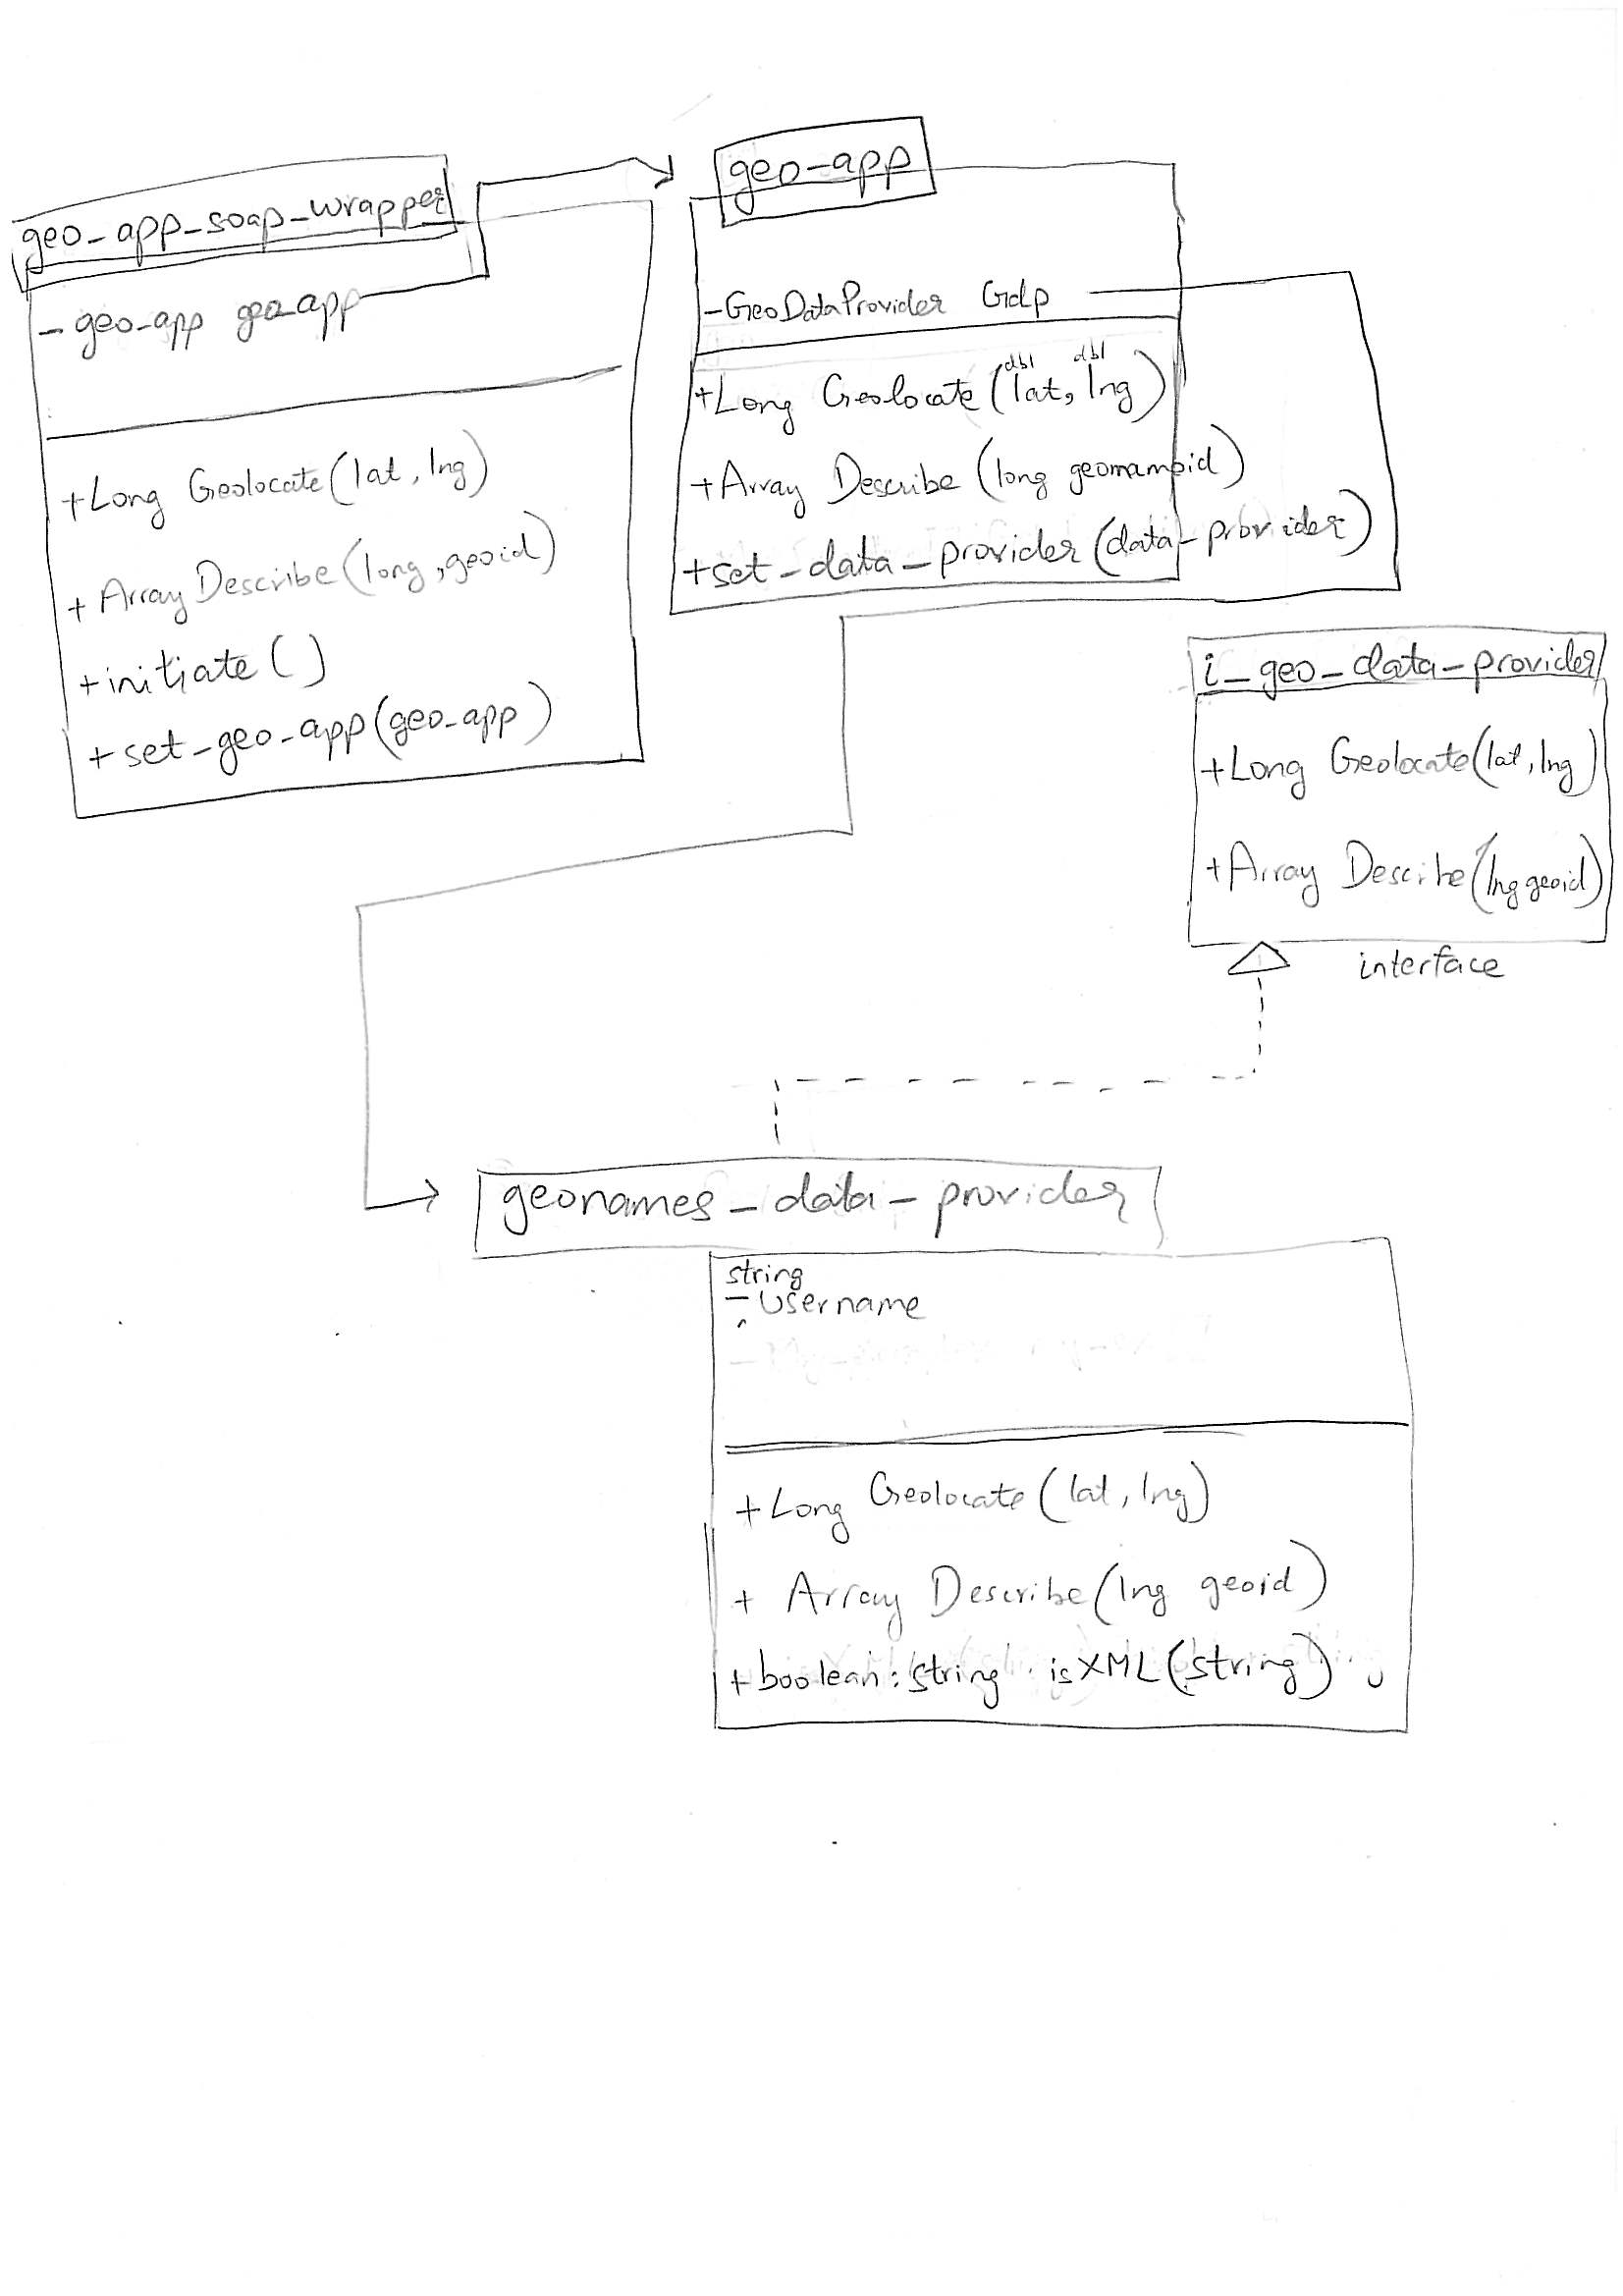 geo_app_soap_wrapper
- geo-app geo-app
+Long Geolocate(lat, lng)
+ Array Describe(long, geoid)
+initiate()
+set-geo-app(geo-app)
geo-app
-GeoDataProvider Gdp
dbl dbl
+Long Geolocate(lat, lng)
+Array Describe (long geonampid)
+set-data-provider(data-provider)
i_geo_data-provider
+Long Geolocate(lat, lng)
+Array Describe(lng geoid)
interface
geonames-data-provider
string
- Username
+Long Geolocate(lat, lng)
+ Array Describe(lng geoid)
+boolean:string isXML(string)